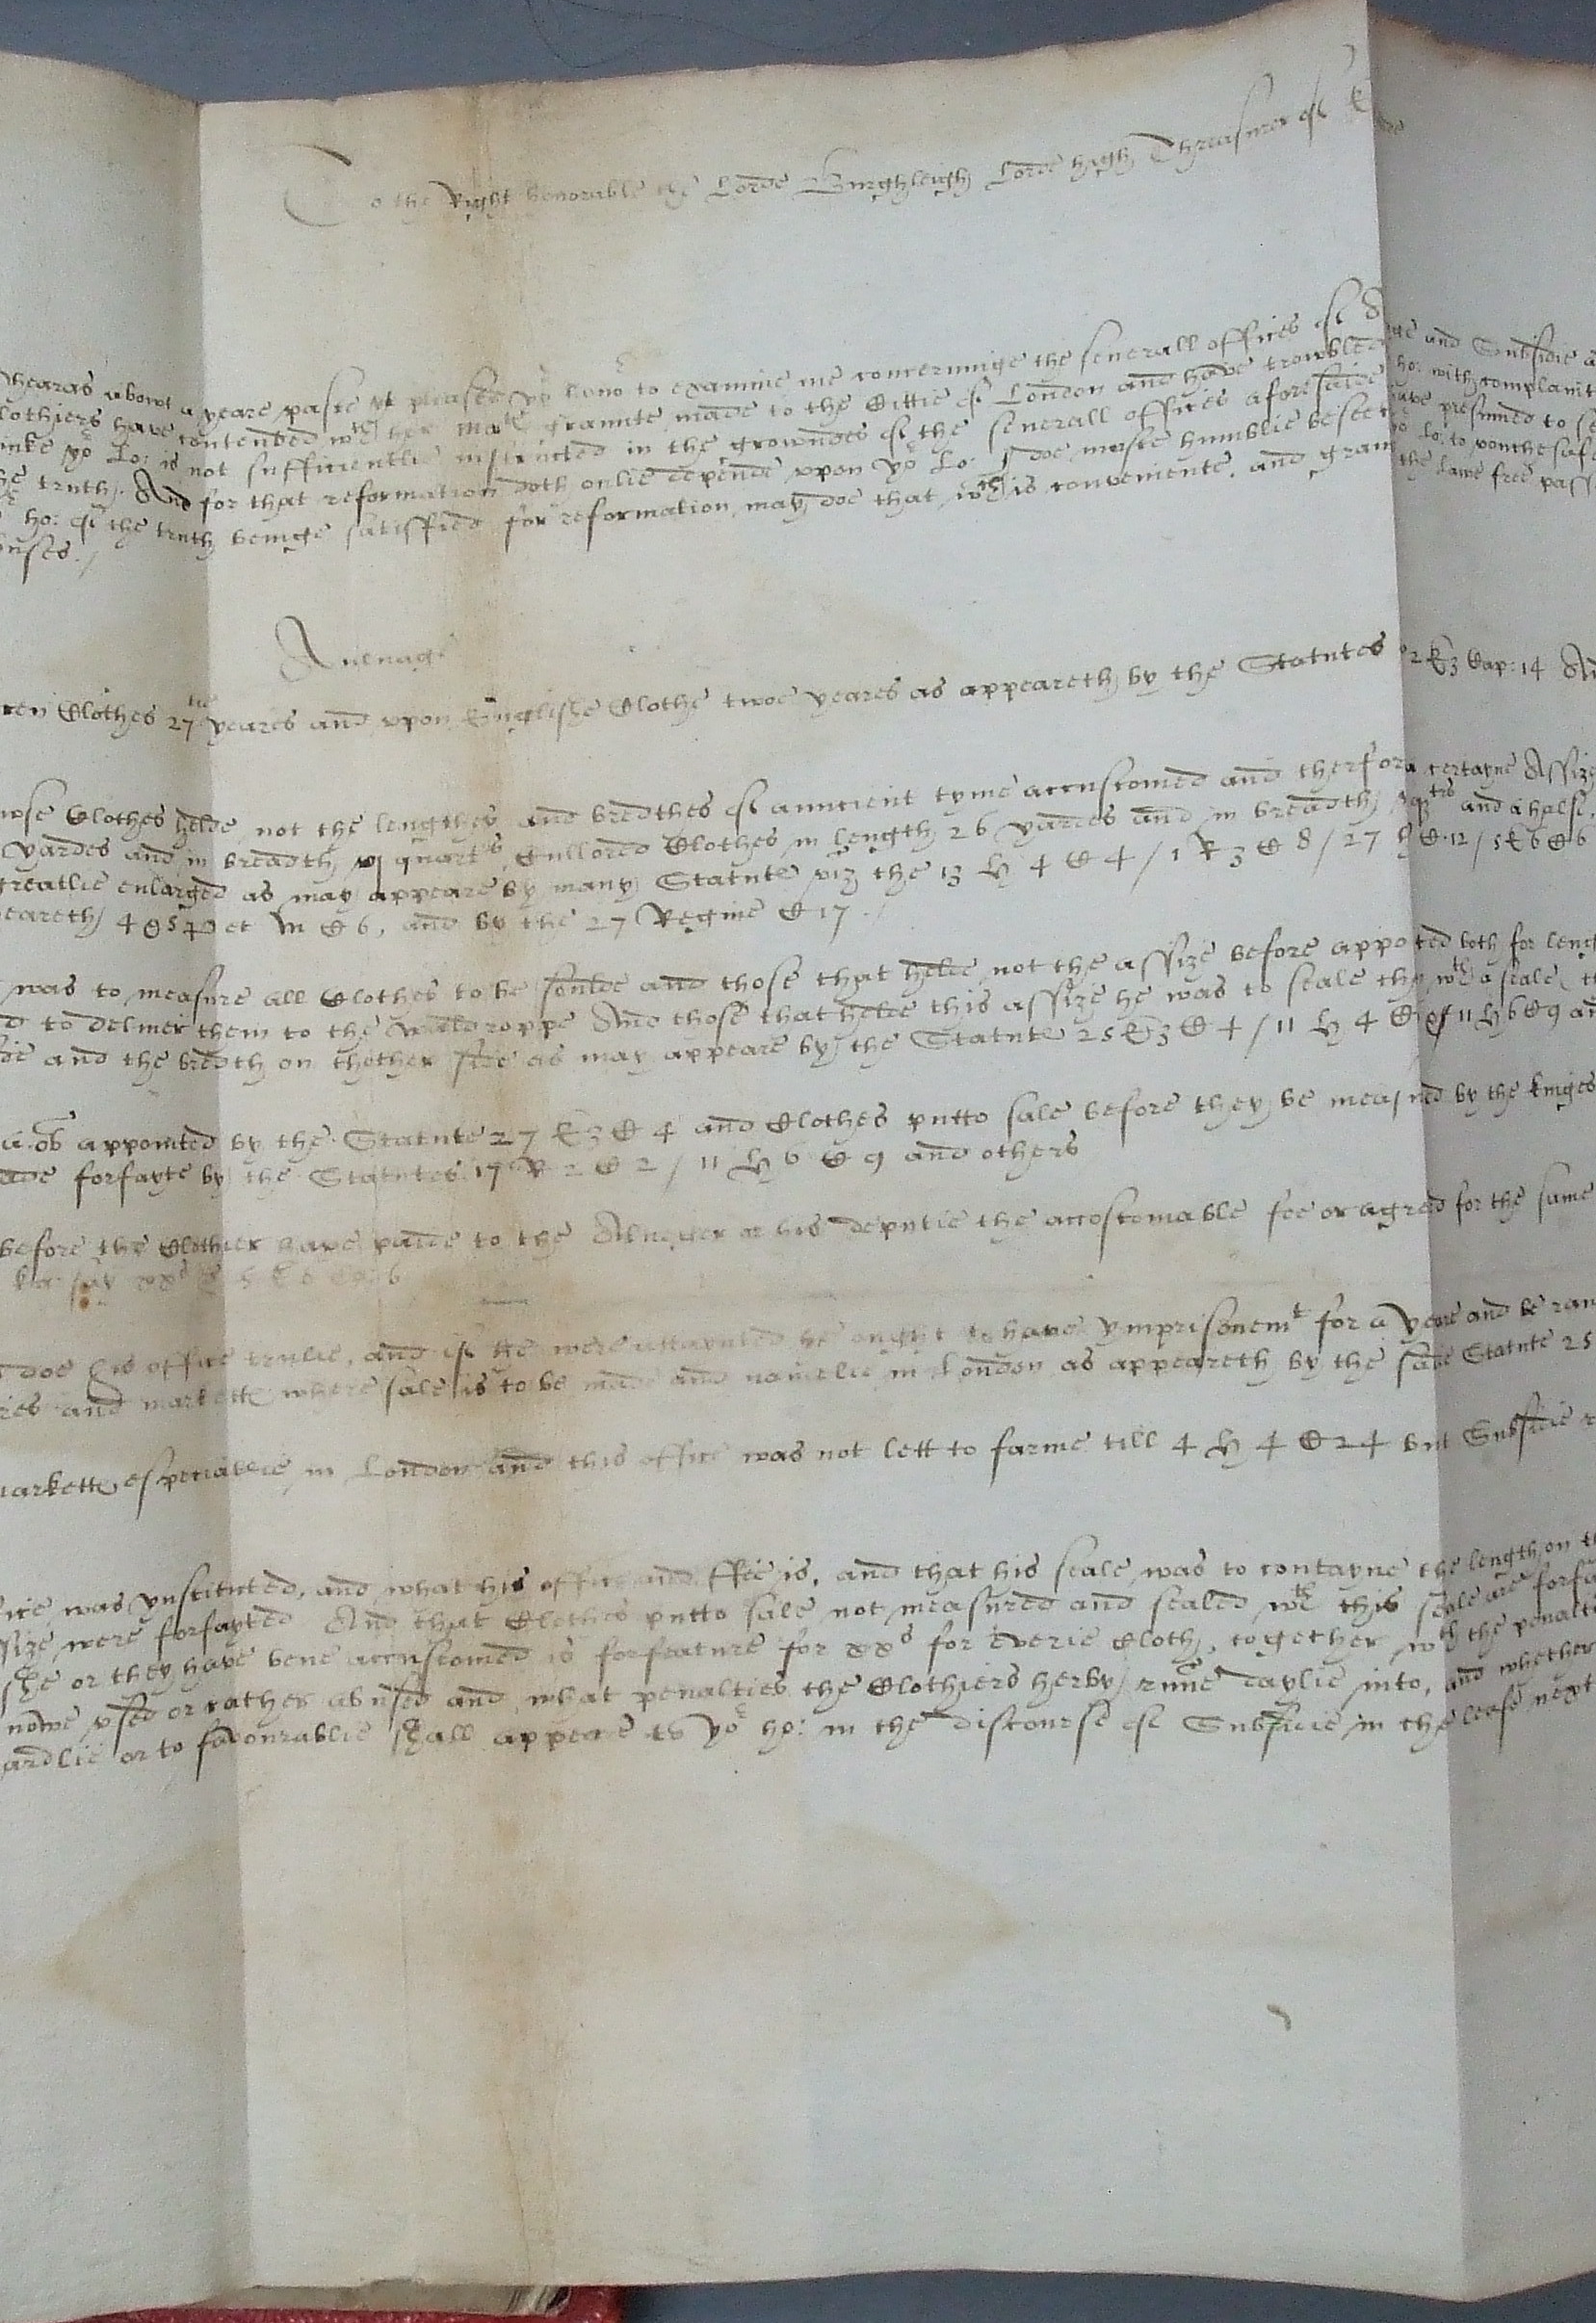 To the Right honorable the Lorde Burghleigh Lorde high Threasurer of
Whearas abowt a yeare paste yt pleased yor hono to examine me concerninge the severall offices of and Subsidie
Clothiers have contended wth her Matie graunte made to the Cittie of London and have trowbled ho: with complaint
yor Lo: is not sufficientlie instructed in the growndes of the severall offices aforesaide have presumed to
the truth. And for that reformation doth onlie depende vppon yor Lo: I doe moste humblie beseech yor Lo: to vouchesafe
ho: of the truth beinge satisffied for reformation may doe that wch is convenyente. and graunt the Lawe free
Aulnage
Clothes 27tie yeares and vpon Englishe Clothe twoe yeares as appeareth by the Statutes 2 E 3 Cap: 14
Clothes helde not the lengthes and bredthes of auncient tyme accustomed and therfore certayne Assize
yardes and in breadth vj quarts Cullored Clothes in length 26 yardes and in breadth qtrs and a halfe.
greatlie enlarged as may appeare by many Statute viz the 13 H 4 C 4 / 1 R 3 C 8 / 27 H C 12 / 5 E 6 C 6
4 et 5 P et M C 6, and by the 27 Regine C 17 ./
was to measure all Clothes to be soulde and those that helde not the assize before appoted both for
to deliver them to the Waldroppe And those that helde this assize he was to seale the wth a seale
and the bredth on thother side as may appeare by the Statute 25 E 3 C 4 / 11 H 4 C 11 H 6 C 9
ob appointed by the Statute 27 E 3 C 4 and Clothes putto sale before they be measured by the kinges
forfayte by the Statutes 17 R 2 C 2 / 11 H 6 C 9 and others
before the Clothier have paide to the Alneger or his deputie the accostomable fee or agred for the same
xxs 5 E 6 C 6
doe his office trulie, and if he were attaynted he ought to have ymprisonemt for a yeare and be
and markette where sale is to be made and namelie in London as appeareth by the said Statute 25
markette especiallie in London and this office was not lett to farme till 4 H 4 C 24 but Subsidie
was ynstituted, and what his office and ffee is, and that his seale was to contayne the length on
were forfayted And that Clothes putto sale not measured and sealed wth this seale are
he or they have bene accustomed is forfeature for xxs for everie Cloth, together wth the
nowe vsed or rather abused and what penalties the Clothiers herby runne daylie into, and whether
or to favourablie shall appeare to yor ho: in the discourse of Subsidie in the leafe next